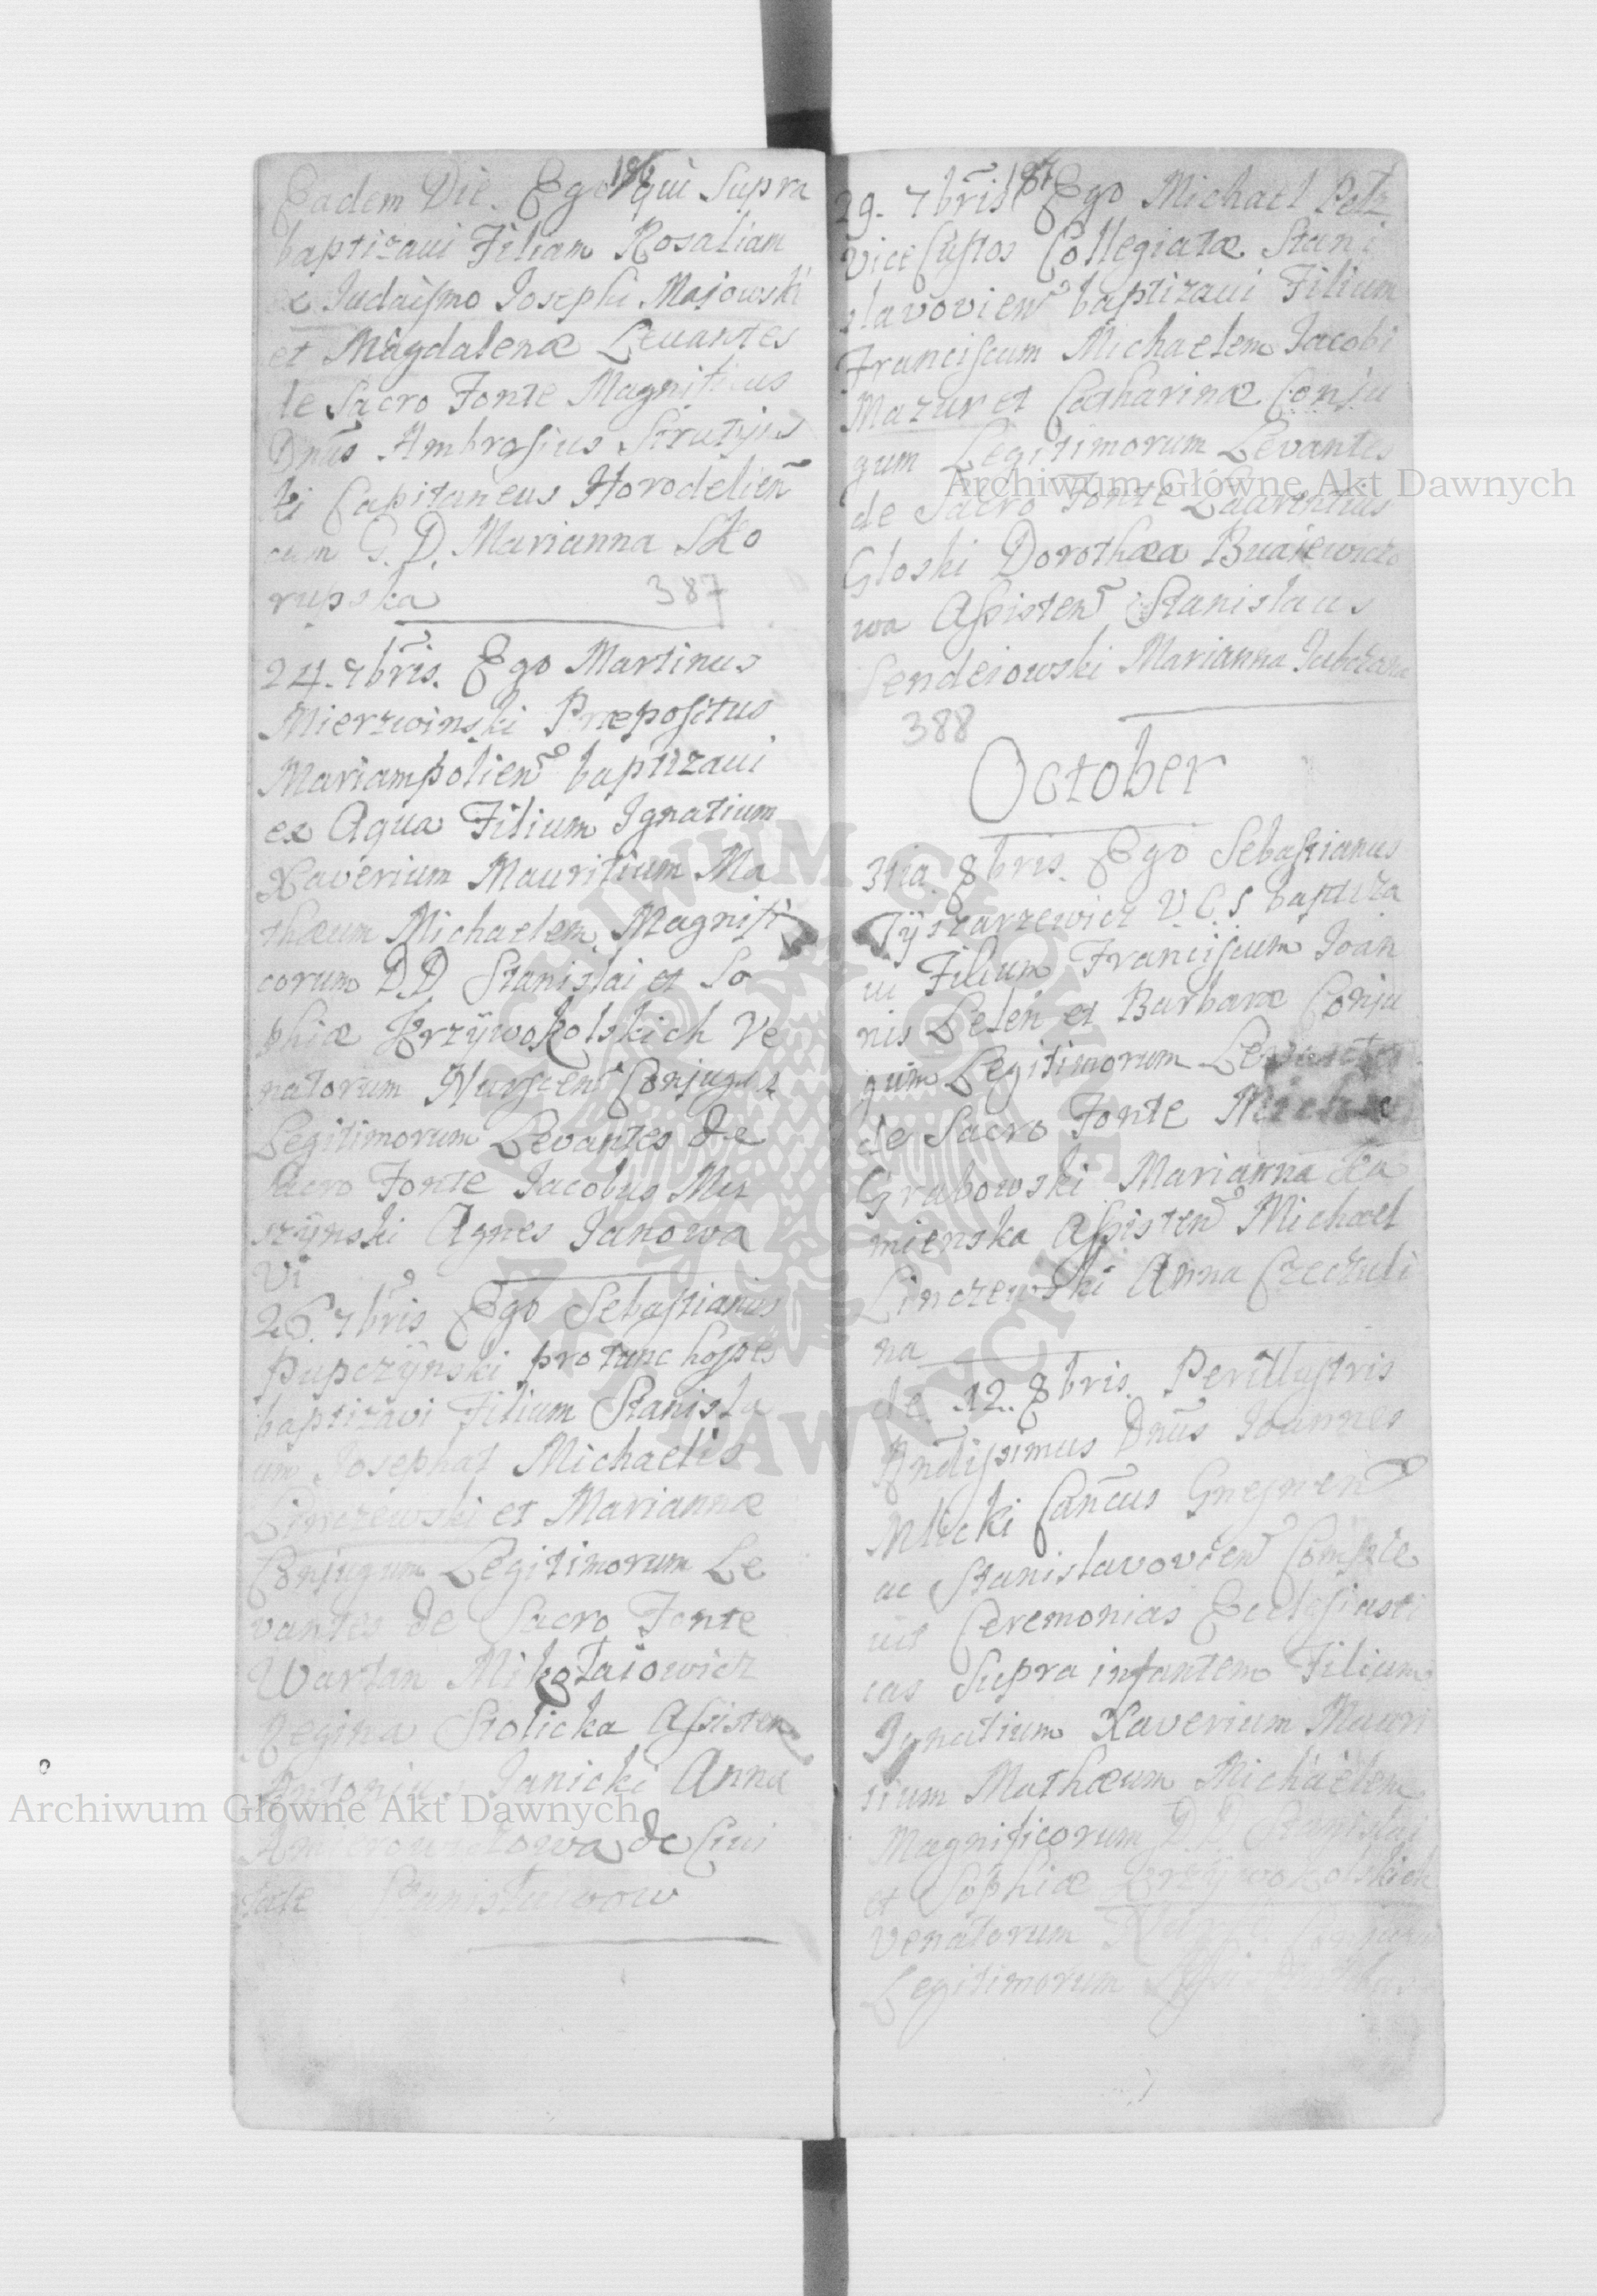 186
Eadem Die. Ego qui Supra
baptizaui Filiam Rosaliam
ex Judaismo Josephi Majowski
et Magdalenæ Levantes
de Sacro Fonte Magnificus
Dnus Ambrosius Strutyns
ki Capitaneus Horodelien
cum G. D. Marianna Sko
rupska
387
24. 7bris. Ego Martinus
Mierzwinski Præpositus
Mariampolien baptizaui
ex Aqua Filium Ignatium
Xaverium Mauritium Ma
thæum Michaelem Magnifi
corum D.D. Stanislai et So
phiæ Krzywokolskich Ve
natorum Conjugum
Legitimorum Levantes de
Sacro Fonte Jacobus
szynski Agnes Janowa
Vi
26. 7bris Ego Sebastianus
Pupczynski pro tunc hospes
baptizavi Filium Stanisla
um Josephat Michaelis
Linczewski et Mariannæ
Conjugum Legitimorum Le
vantes de Sacro Fonte
Wartan Mikołaiowicz
Regina Stolicka Assisten
Antonius Janicki Anna
de Ciui
tate Stanisławow
187
29. 7bris Ego Michael Petz
Vice Custos Collegiatæ Stani
slavovien baptizaui Filium
Franciscum Michaelem Jacobi
Mazur et Catharinæ Conju
gum Legitimorum Levantes
de Sacro Fonte Laurentius
Gloski Dorothæa
wa Assisten Stanislaus
Sendeiowski Marianna
388
October
31ia 8bris. Ego Sebastianus
Tyszarzewicz V.C.S baptiza
ui Filium Franciscum Joan
nis Lelen et Barbaræ Conju
gum Legitimorum Levantes
de Sacro Fonte Michae
Grabowski Marianna Ka
mienska Assisten Michael
Linczewski Anna Czeczuli
na
de 12. 8bris. Perillustris
Rndissimus Dnus Joannes
Mlicki Cancus Gnesnen
ac Stanislavovien Comple
uit Ceremonias Ecclesiasti
cas Supra infantem Filium
Ignatium Xaverium Mauri
tium Mathæum Michaelem
Magnificorum D.D. Stanislai
et Sophiæ Krzywokolskich
Venatorum Conjugum
Legitimorum
Archiwum Główne Akt Dawnych
Archiwum Główne Akt Dawnych
ARCHIWUM GŁÓWNE AKT DAWNYCH